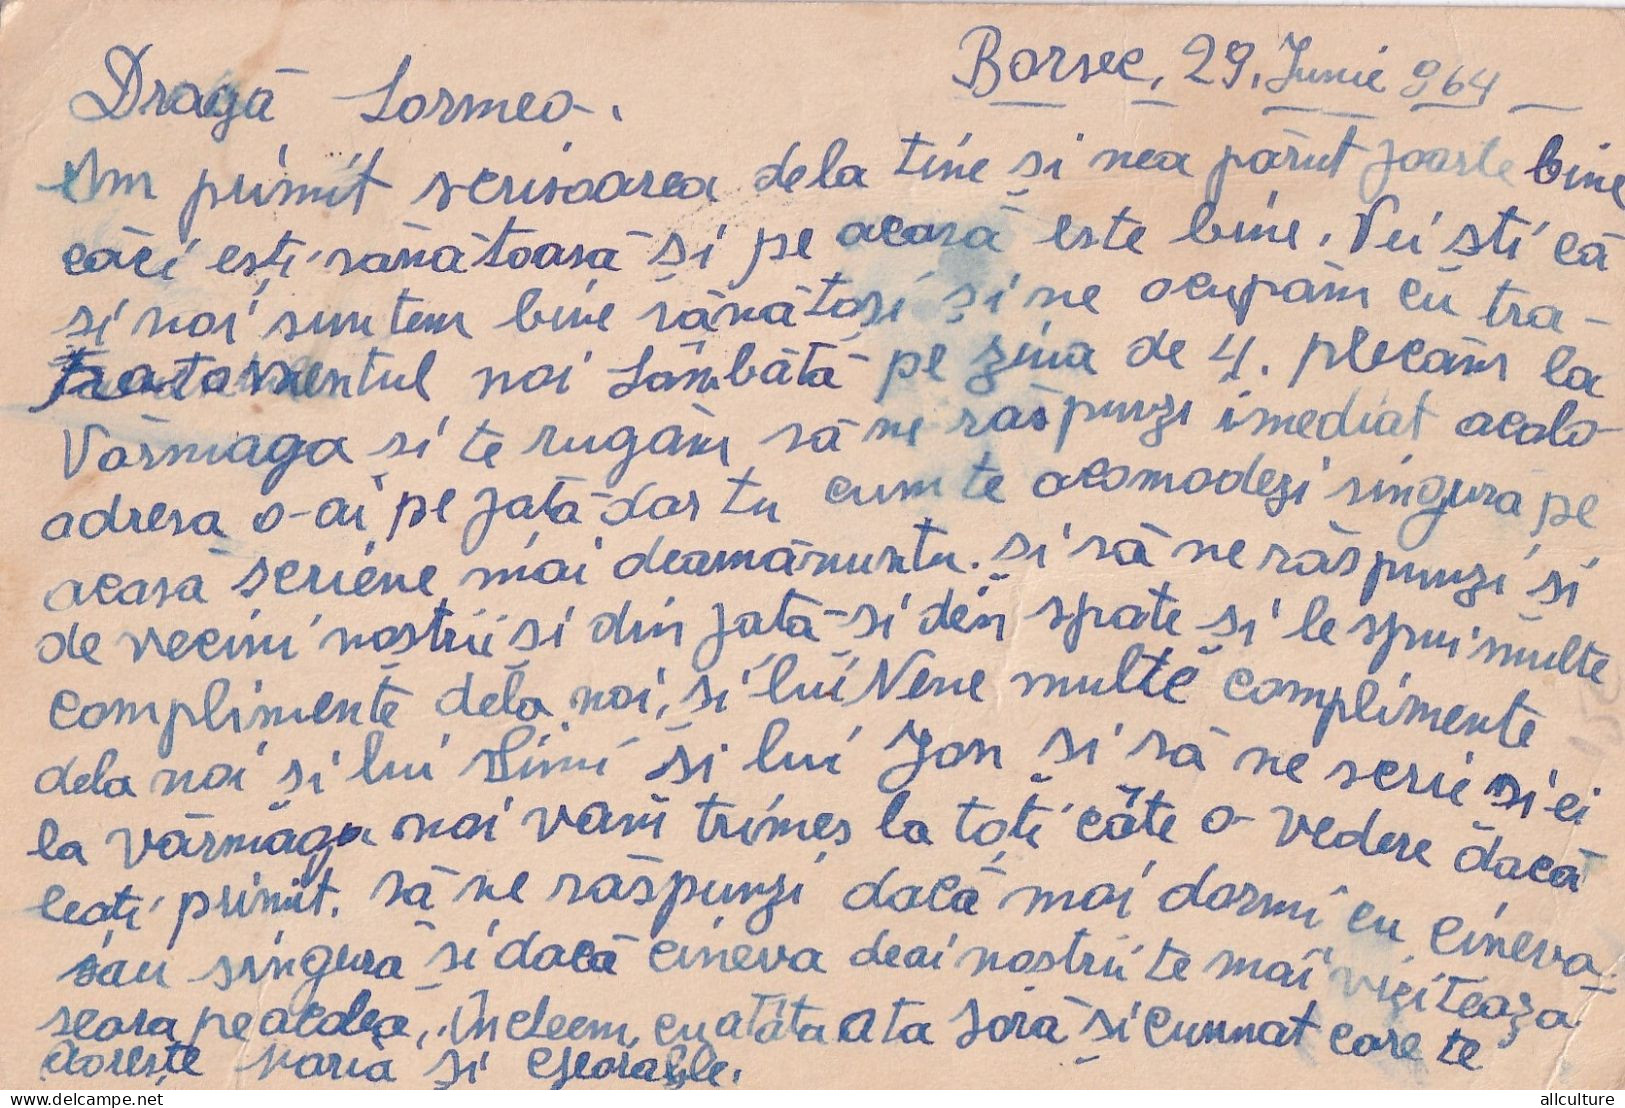 Borsec, 29. Junie 964
Dragă
Am primit serisoarea dela tine și nea părut foarte bine
căci ești sănătoasă și pe acasă este bine. Vei sti că
și noi suntem bine sănătoși și ne ocupăm cu tra-
tatamentul noi Sâmbătă pe ziua de 4. plecăm la
Vărmaga si te rugăm să ne răspunzi imediat acolo
adresa o-ai pe fată dar tu cumte acomodezi singură pe
acasă seriene mai deamănuntu. și să ne răspunzi și
de vecini nostrii și din fată-si din spate și le spui multe
complimente dela noi, și lui Nene multe complimente
dela noi și lui și lui Jon și să ne serie și ei
la vărmăga noi vam trimes la toți câte o vedere dacă
leați primit. să ne răspunzi dacă mai dormi cu cineva
sau singură și dacă cineva deai nostrii te mai vizitează
seara peacolea, Încleem cu atâta a ta soră și cumnat care te
dorește Maria și
allculture